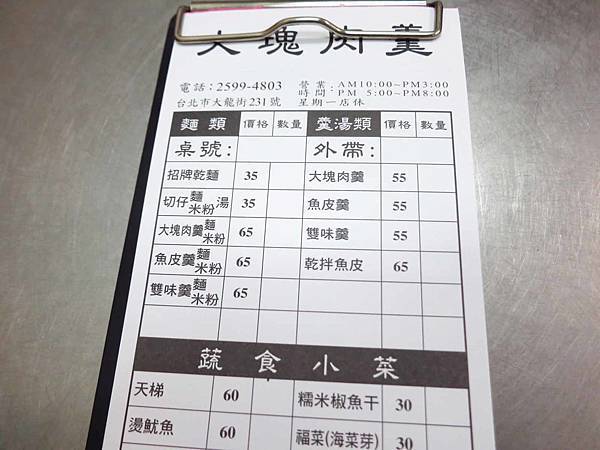 大塊肉羹
電話：2599-4803 營業：AM10:00~PM3:00
時間：PM 5:00~PM8:00
台北市大龍街231號 星期一店休
麵類 價格 數量 羹湯類 價格 數量
桌號： 外帶：
招牌乾麵 35 大塊肉羹 55
切仔麵米粉湯 35 魚皮羹 55
大塊肉羹麵米粉 65 雙味羹 55
魚皮羹麵米粉 65 乾拌魚皮 65
雙味羹麵米粉 65
蔬食小菜
天梯 60 糯米椒魚干 30
燙魷魚 60 福菜(海菜芽) 30